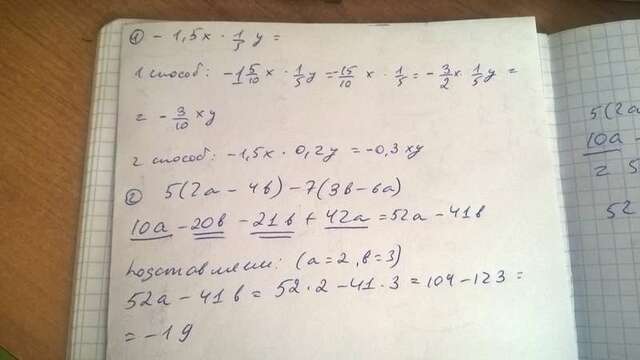 ① - 1,5x · 1/5 y =
1 способ: -1 5/10 x · 1/5 y = -15/10 x · 1/5 = - 3/2 x · 1/5 y =
= - 3/10 xy
2 способ: -1,5x · 0,2y = -0,3xy
② 5(2a - 4b) - 7(3b - 6a)
10a - 20b - 21b + 42a = 52a - 41b
подставляем: (a=2, b=3)
52a - 41b = 52·2 - 41·3 = 104 - 123 =
= -19
5(2a
10a -
2 5
52